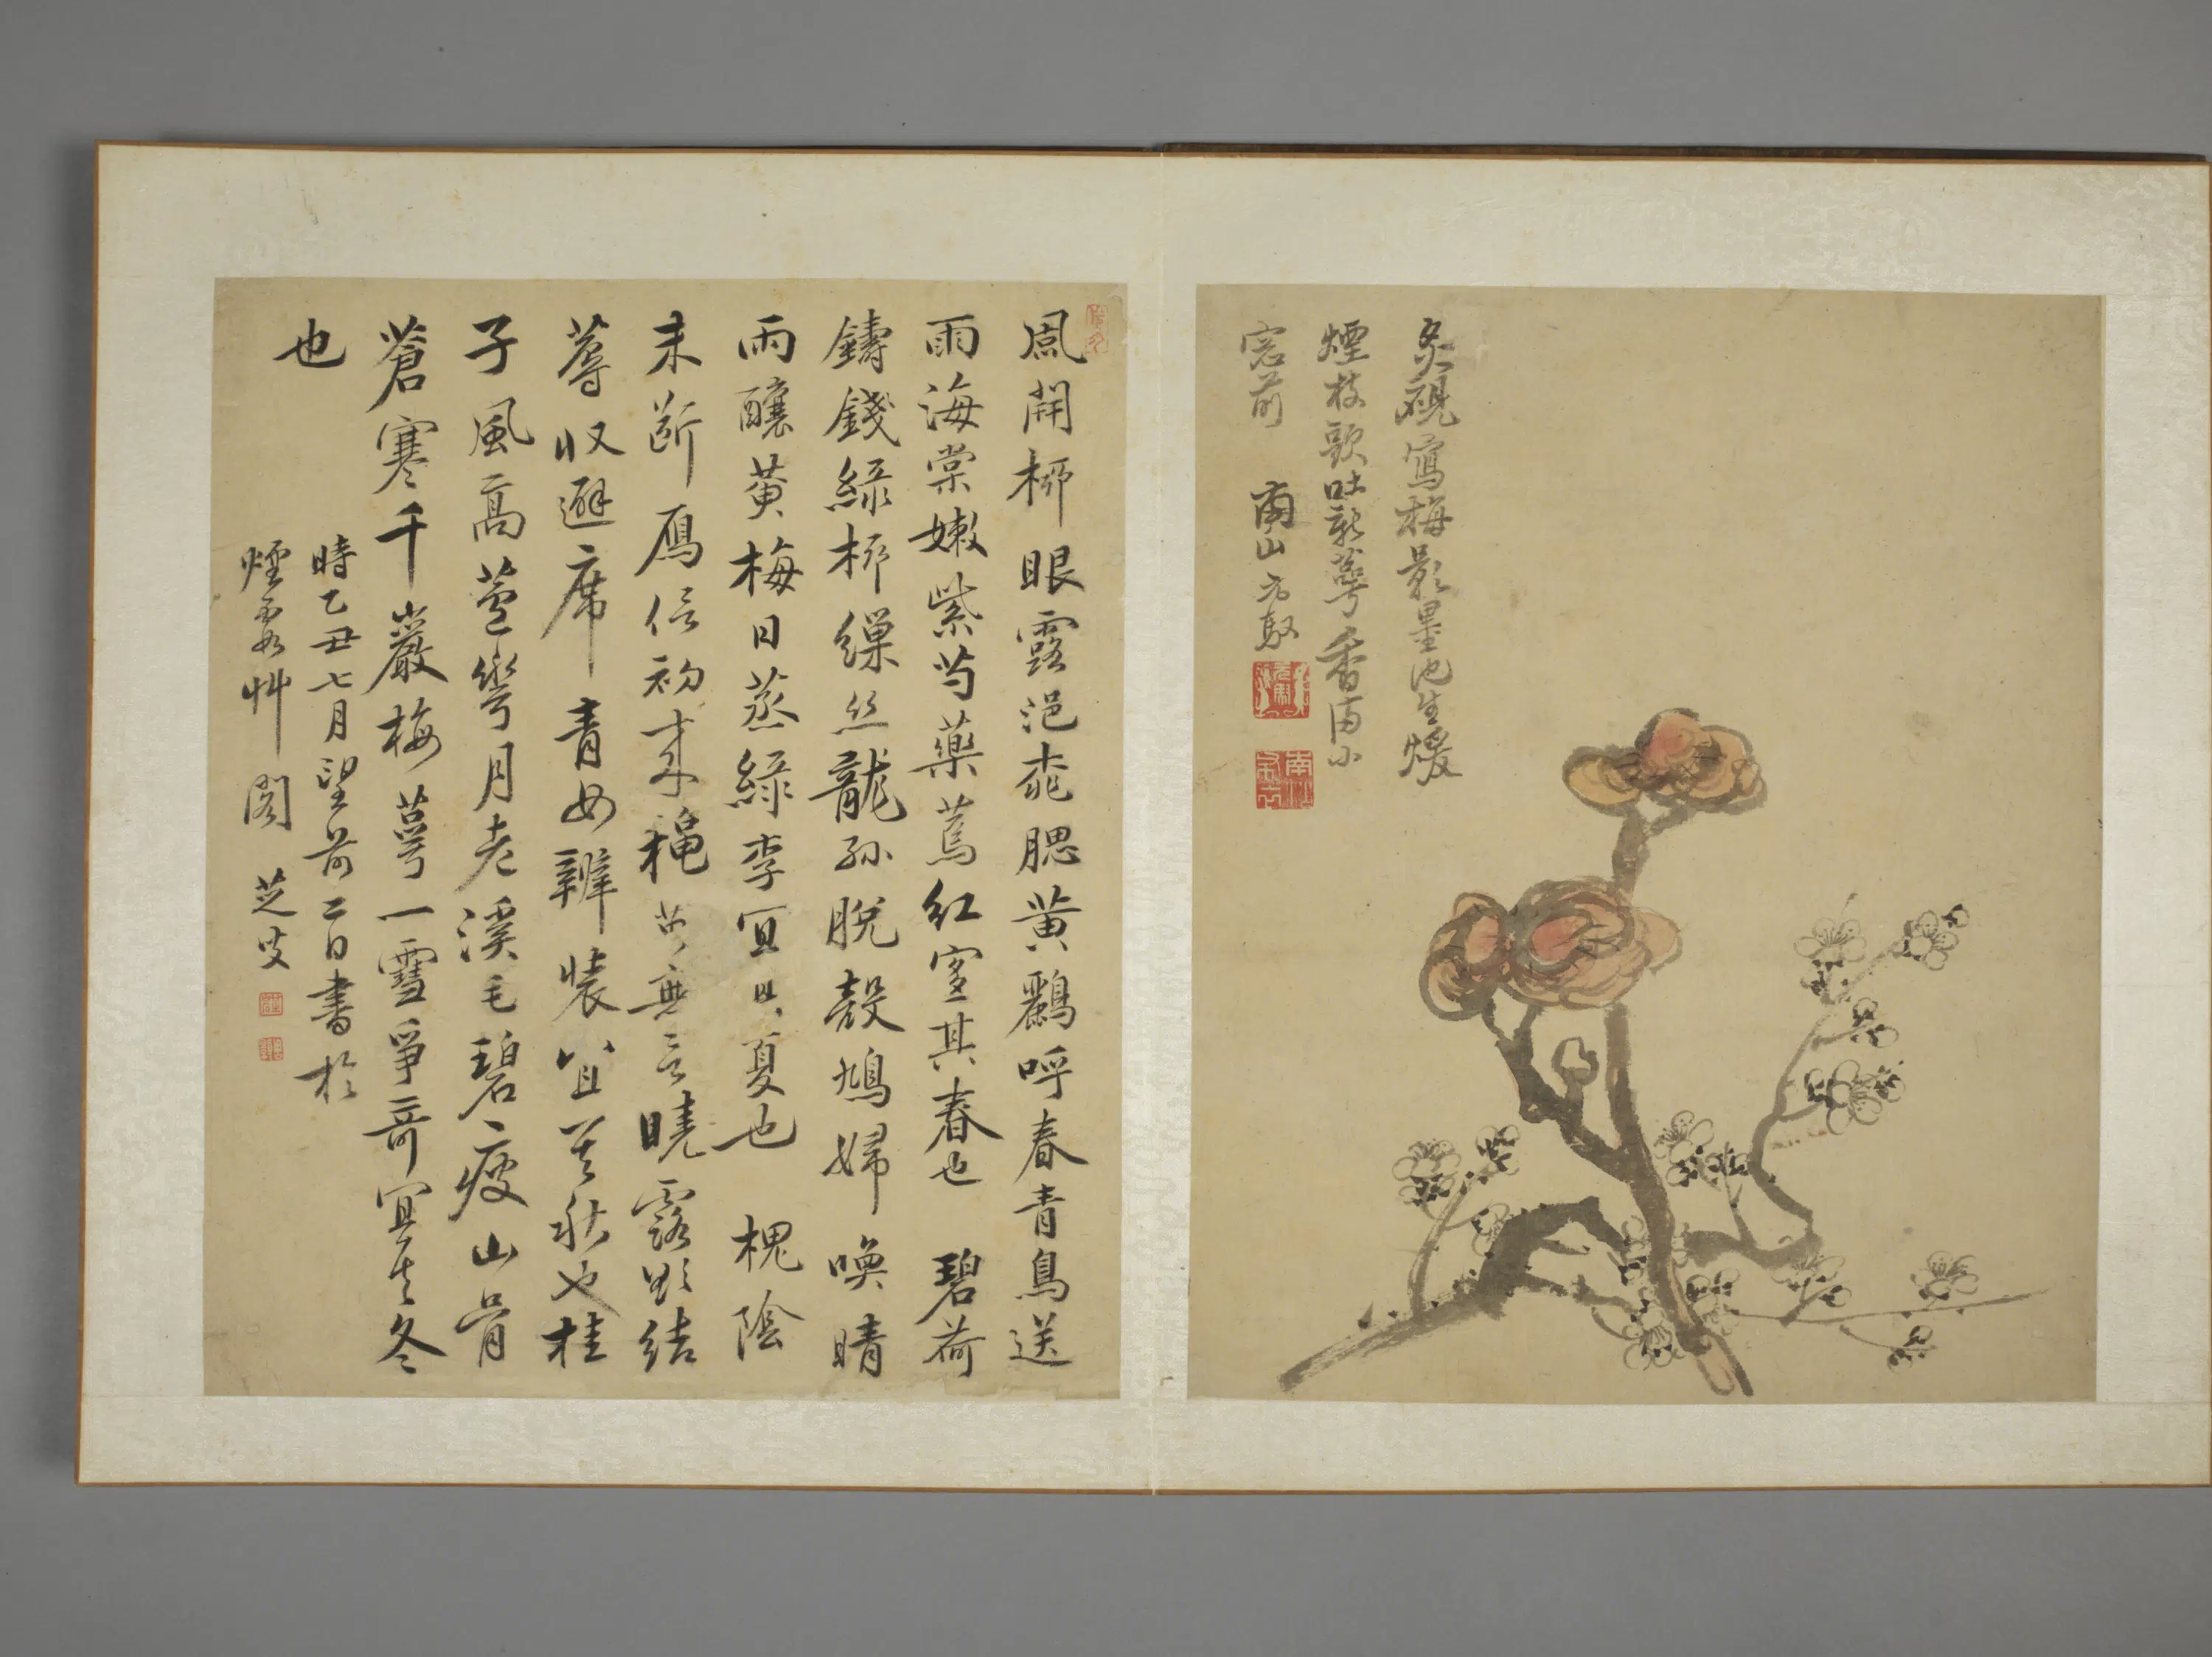 炙硯寫梅影墨池生煖
煙枝欲吐新萼香满小
窓前 南山方馭
風開柳眼露浥桃腮黃鸝呼春青鳥送
雨海棠嫩紫芍藥蔫紅宜其春也 碧荷
鑄錢綠柳繅丝龍孫脫殼鳩婦喚晴
雨釀黃梅日蒸綠李宜其夏也 槐陰
未斷鴈信初来穐英無言曉露欲結
蓐収避席青女辦装宜其秋也桂
子風高蘆雪月老溪毛碧瘦山骨
蒼寒千巖梅萼一雪爭奇宜其冬
也
時乙丑七月望前二日書於
煙霞艸閣 芝叟